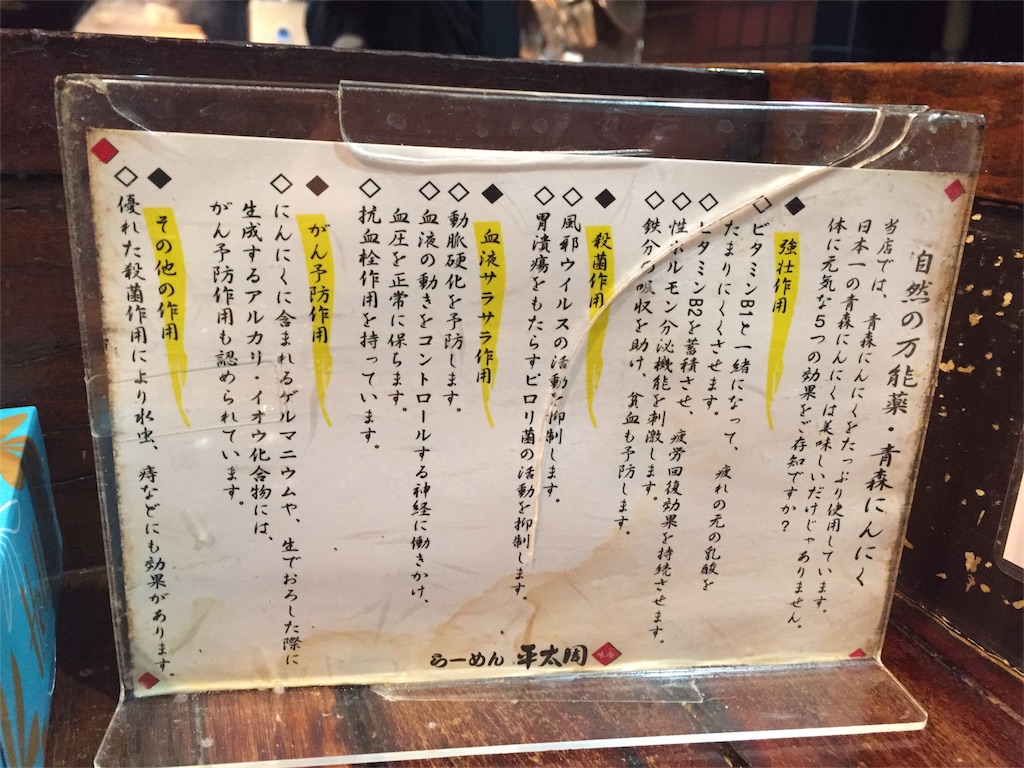 自然の万能薬・青森にんにく
当店では、青森にんにくをたっぷり使用しています。
日本一の青森にんにくは美味しいだけじゃありません。
体に元気な5つの効果をご存知ですか？
◆強壮作用
◇ビタミンB1と一緒になって、疲れの元の乳酸を
たまりにくくさせます。
◇ビタミンB2を蓄積させ、疲労回復効果を持続させます。
◇性ホルモン分泌機能を刺激します。
◇鉄分の吸収を助け、貧血も予防します。
◆殺菌作用
◇風邪ウイルスの活動を抑制します。
◇胃潰瘍をもたらすピロリ菌の活動を抑制します。
◆血液サラサラ作用
◇動脈硬化を予防します。
◇血液の動きをコントロールする神経に働きかけ、
血圧を正常に保ちます。
◇抗血栓作用を持っています。
◆がん予防作用
◇にんにくに含まれるゲルマニウムや、生でおろした際に
生成するアルカリ・イオウ化合物には、
がん予防作用も認められています。
◆その他の作用
◇優れた殺菌作用により水虫、痔などにも効果があります。
らーめん 平太周